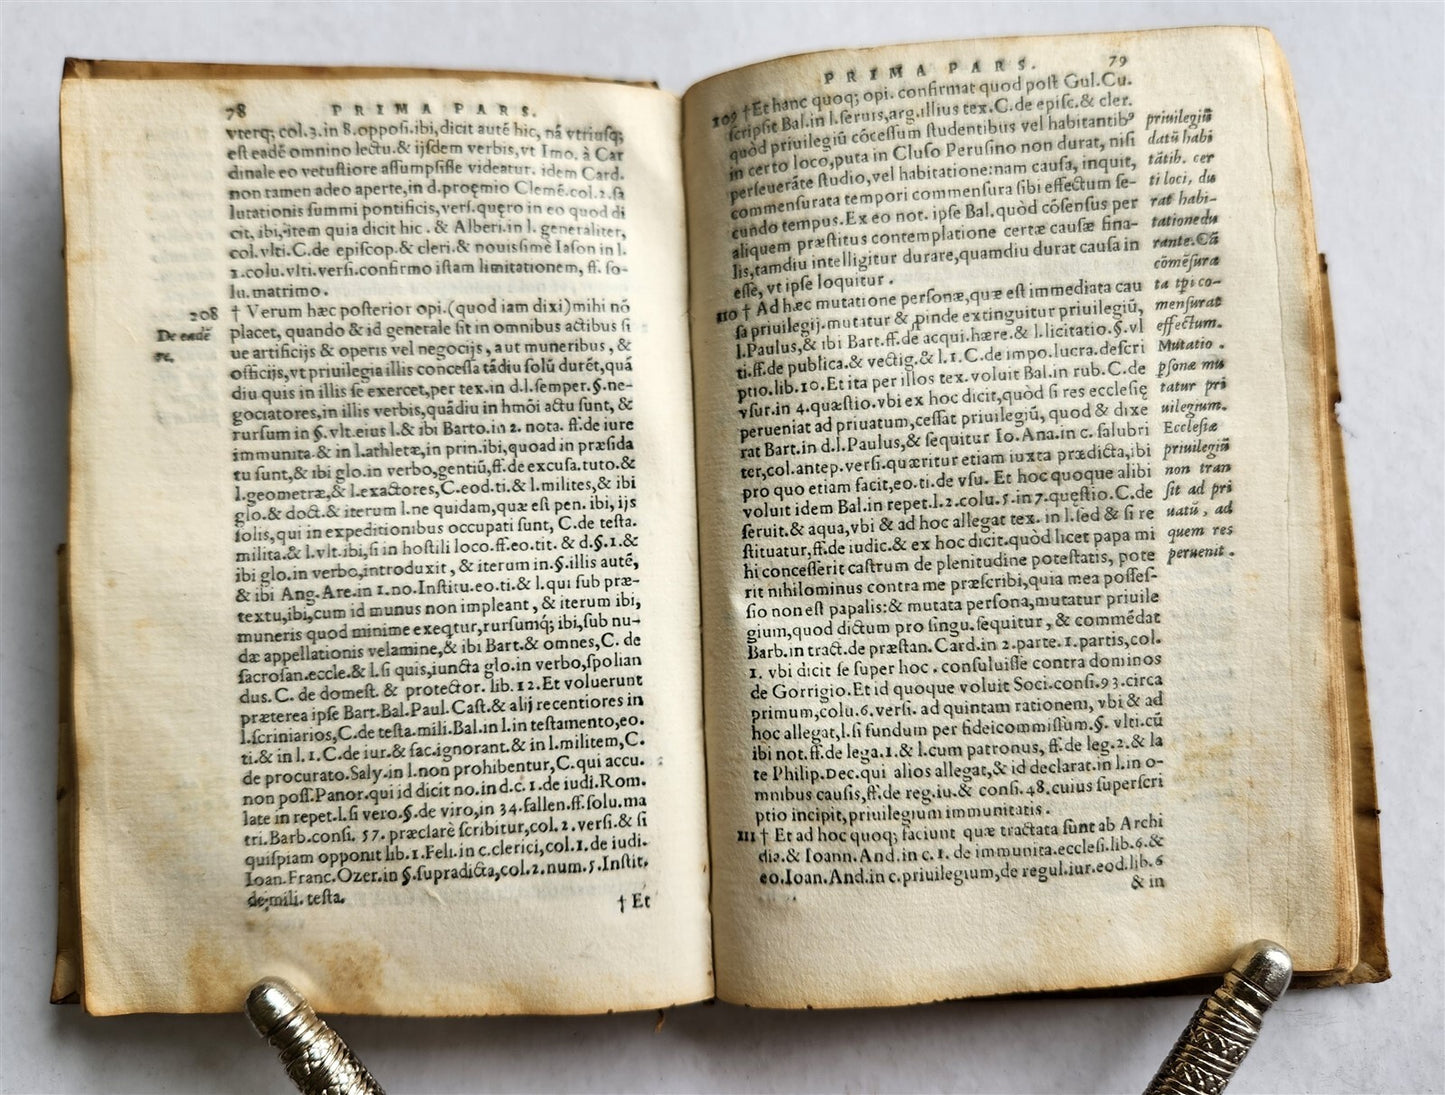 78 PRIMA PARS.
vterq; col.3.in 8.oppoſi.ibi,dicit autē hic, nā vtriuſq;
eſt eadē omnino lectu.& ijſdem verbis,vt Imo. à Car
dinale eo vetuſtiore aſſumpſiſſe videatur. idem Card.
non tamen adeo aperte,in d.proęmio Clemē.col.2.ſa
lutationis ſummi pontificis,verſ.quęro in eo quod di
cit, ibi,item quia dicit hic. & Alberi.in l. generaliter,
col.vlti.C.de epiſcop.& cleri.& nouiſſime Iaſon in l.
1.colu.vlti.verſi.confirmo iſtam limitationem, ff. ſo-
lu.matrimo.
208 † Verum hæc poſterior opi.(quod iam dixi)mihi nō
De eadē
re,
placet, quando & id generale ſit in omnibus actibus ſi
ue artificijs & operis vel negocijs, aut muneribus, &
officijs,vt priuilegia illis conceſſa tādiu ſolū durēt,quā
diu quis in illis ſe exercet,per tex.in d.l.ſemper.§.ne-
gociatores,in illis verbis,quādiu in hmōi actu ſunt, &
rurſum in §.vlt.eius l.& ibi Barto.in 2. nota. ff.de iure
immunita.& in l.athletæ,in prin.ibi,quoad in præſida
tu ſunt,& ibi glo.in verbo,gentiū,ff.de excuſa.tuto.&
l.geometræ,& l.exactores,C.eod.ti.& l.milites,& ibi
glo.& doct.& iterum l.ne quidam,quæ eſt pen. ibi, ijs
ſolis,qui in expeditionibus occupati ſunt, C.de teſta.
milita.& l.vlt.ibi,ſi in hoſtili loco.ff.eo.tit. & d.§.1.&
ibi glo.in verbo,introduxit, & iterum in.§.illis autē,
& ibi Ang.Are.in 1.no.Inſtitu.eo.ti.& l.qui ſub præ-
textu,ibi,cum id munus non impleant, & iterum ibi,
muneris quod minime exeqtur,rurſumq; ibi,ſub nu-
dæ appellationis velamine,& ibi Bart.& omnes,C. de
ſacroſan.eccle.& l.ſi quis,iuncta glo.in verbo,ſpolian
dus. C. de domeſt. & protector. lib.12.Et voluerunt
præterea ipſe Bart.Bal.Paul.Caſt.& alij recentiores in
l.ſcriniarios,C.de teſta.mili.Bal.in l.in teſtamento,eo.
ti.& in l.1.C.de iur.& fac.ignorant.& in l.militem,C.
de procurato.Saly.in l.non prohibentur,C.qui accu.
non poſſ.Panor.qui id dicit no.in d.c.1.de iudi.Rom.
late in repet.l.ſi vero.§.de viro,in 34.fallen.ff.ſolu.ma
tri.Barb.conſi. 57. præclarè ſcribitur,col.2.verſi.& ſi
quiſpiam opponit lib.1.Feli.in c.clerici,col.1.de iudi.
Ioan.Franc.Ozer.in §.ſupradicta,col.2.num.5.Inſtit.
de mili. teſta.
† Et
PRIMA PARS. 79
109 † Et hanc quoq; opi. confirmat quod poſt Gul.Cu.
ſcripſit Bal.in l.ſeruis,arg.illius tex.C.de epiſc.& cler.
quòd priuilegiū cōceſſum ſtudentibus vel habitantibꝰ
in certo loco,puta in Cluſo Peruſino non durat, niſi
perſeuerāte ſtudio,vel habitatione:nam cauſa, inquit,
commenſurata tempori commenſura ſibi effectum ſe-
cundo tempus. Ex eo not. ipſe Bal.quòd cōſenſus per
aliquem præſtitus contemplatione certæ cauſæ fina-
lis,tamdiu intelligitur durare,quamdiu durat cauſa in
eſſe, vt ipſe loquitur.
priuilegiū
datū habi
tātib. cer
ti loci, du
rat habi-
tatione du
rante.Cā
cōmēſura
ta tpi co-
menſurat
effectum.
110 † Ad hæc mutatione perſonæ,quæ eſt immediata cau
ſa priuilegij.mutatur & pinde extinguitur priuilegiū,
l.Paulus,& ibi Bart.ff.de acqui.hære.& l.licitatio.§.vl
ti.ff.de publica.& vectig.& l.1.C.de impo.lucra.deſcri
ptio.lib.10.Et ita per illos tex.voluit Bal.in rub.C.de
vſur.in 4.quæſtio.vbi ex hoc dicit,quòd ſi res eccleſię
perueniat ad priuatum,ceſſat priuilegiū, quod & dixe
rat Bart.in d.l.Paulus,& ſequitur Io.Ana.in c. ſalubri
ter,col.antep.verſi.quæritur etiam iuxta prædicta,ibi
pro quo etiam facit,eo.ti.de vſu. Et hoc quoque alibi
voluit idem Bal.in repet.l.2.colu.5.in 7.queſtio.C.de
ſeruit.& aqua,vbi & ad hoc allegat tex. in l.ſed & ſi re
ſtituatur,ff.de iudic.& ex hoc dicit.quòd licet papa mi
hi conceſſerit caſtrum de plenitudine poteſtatis, pote
rit nihilominus contra me præſcribi,quia mea poſſeſ-
ſio non eſt papalis:& mutata perſona,mutatur priuile
gium,quod dictum pro ſingu.ſequitur, & commēdat
Barb.in tract.de præſtan.Card.in 2.parte.1.partis,col.
1. vbi dicit ſe ſuper hoc. conſuluiſſe contra dominos
de Gorrigio.Et id quoque voluit Soci.conſi.93.circa
primum,colu.6.verſi. ad quintam rationem, vbi & ad
hoc allegat,l.ſi fundum per fideicommiſſum.§. vlti.cū
ibi not.ff.de lega.1.& l.cum patronus, ff.de leg.2.& la
te Philip.Dec.qui alios allegat,& id declarat.in l.in o-
mnibus cauſis,ff.de reg.iu.& conſi.48.cuius ſuperſcri
ptio incipit,priuilegium immunitatis.
Mutatio.
pſonæ mu
tatur pri
uilegium.
Eccleſiæ
priuilegiū
non tran
ſit ad pri
uatū, ad
quem res
peruenit.
111 † Et ad hoc quoq; faciunt quæ tractata ſunt ab Archi
dia.& Ioann.And.in c.1. de immunita.eccleſi.lib.6.&
eo.Ioan.And.in c.priuilegium,de regul.iur.eod.lib.6
& in